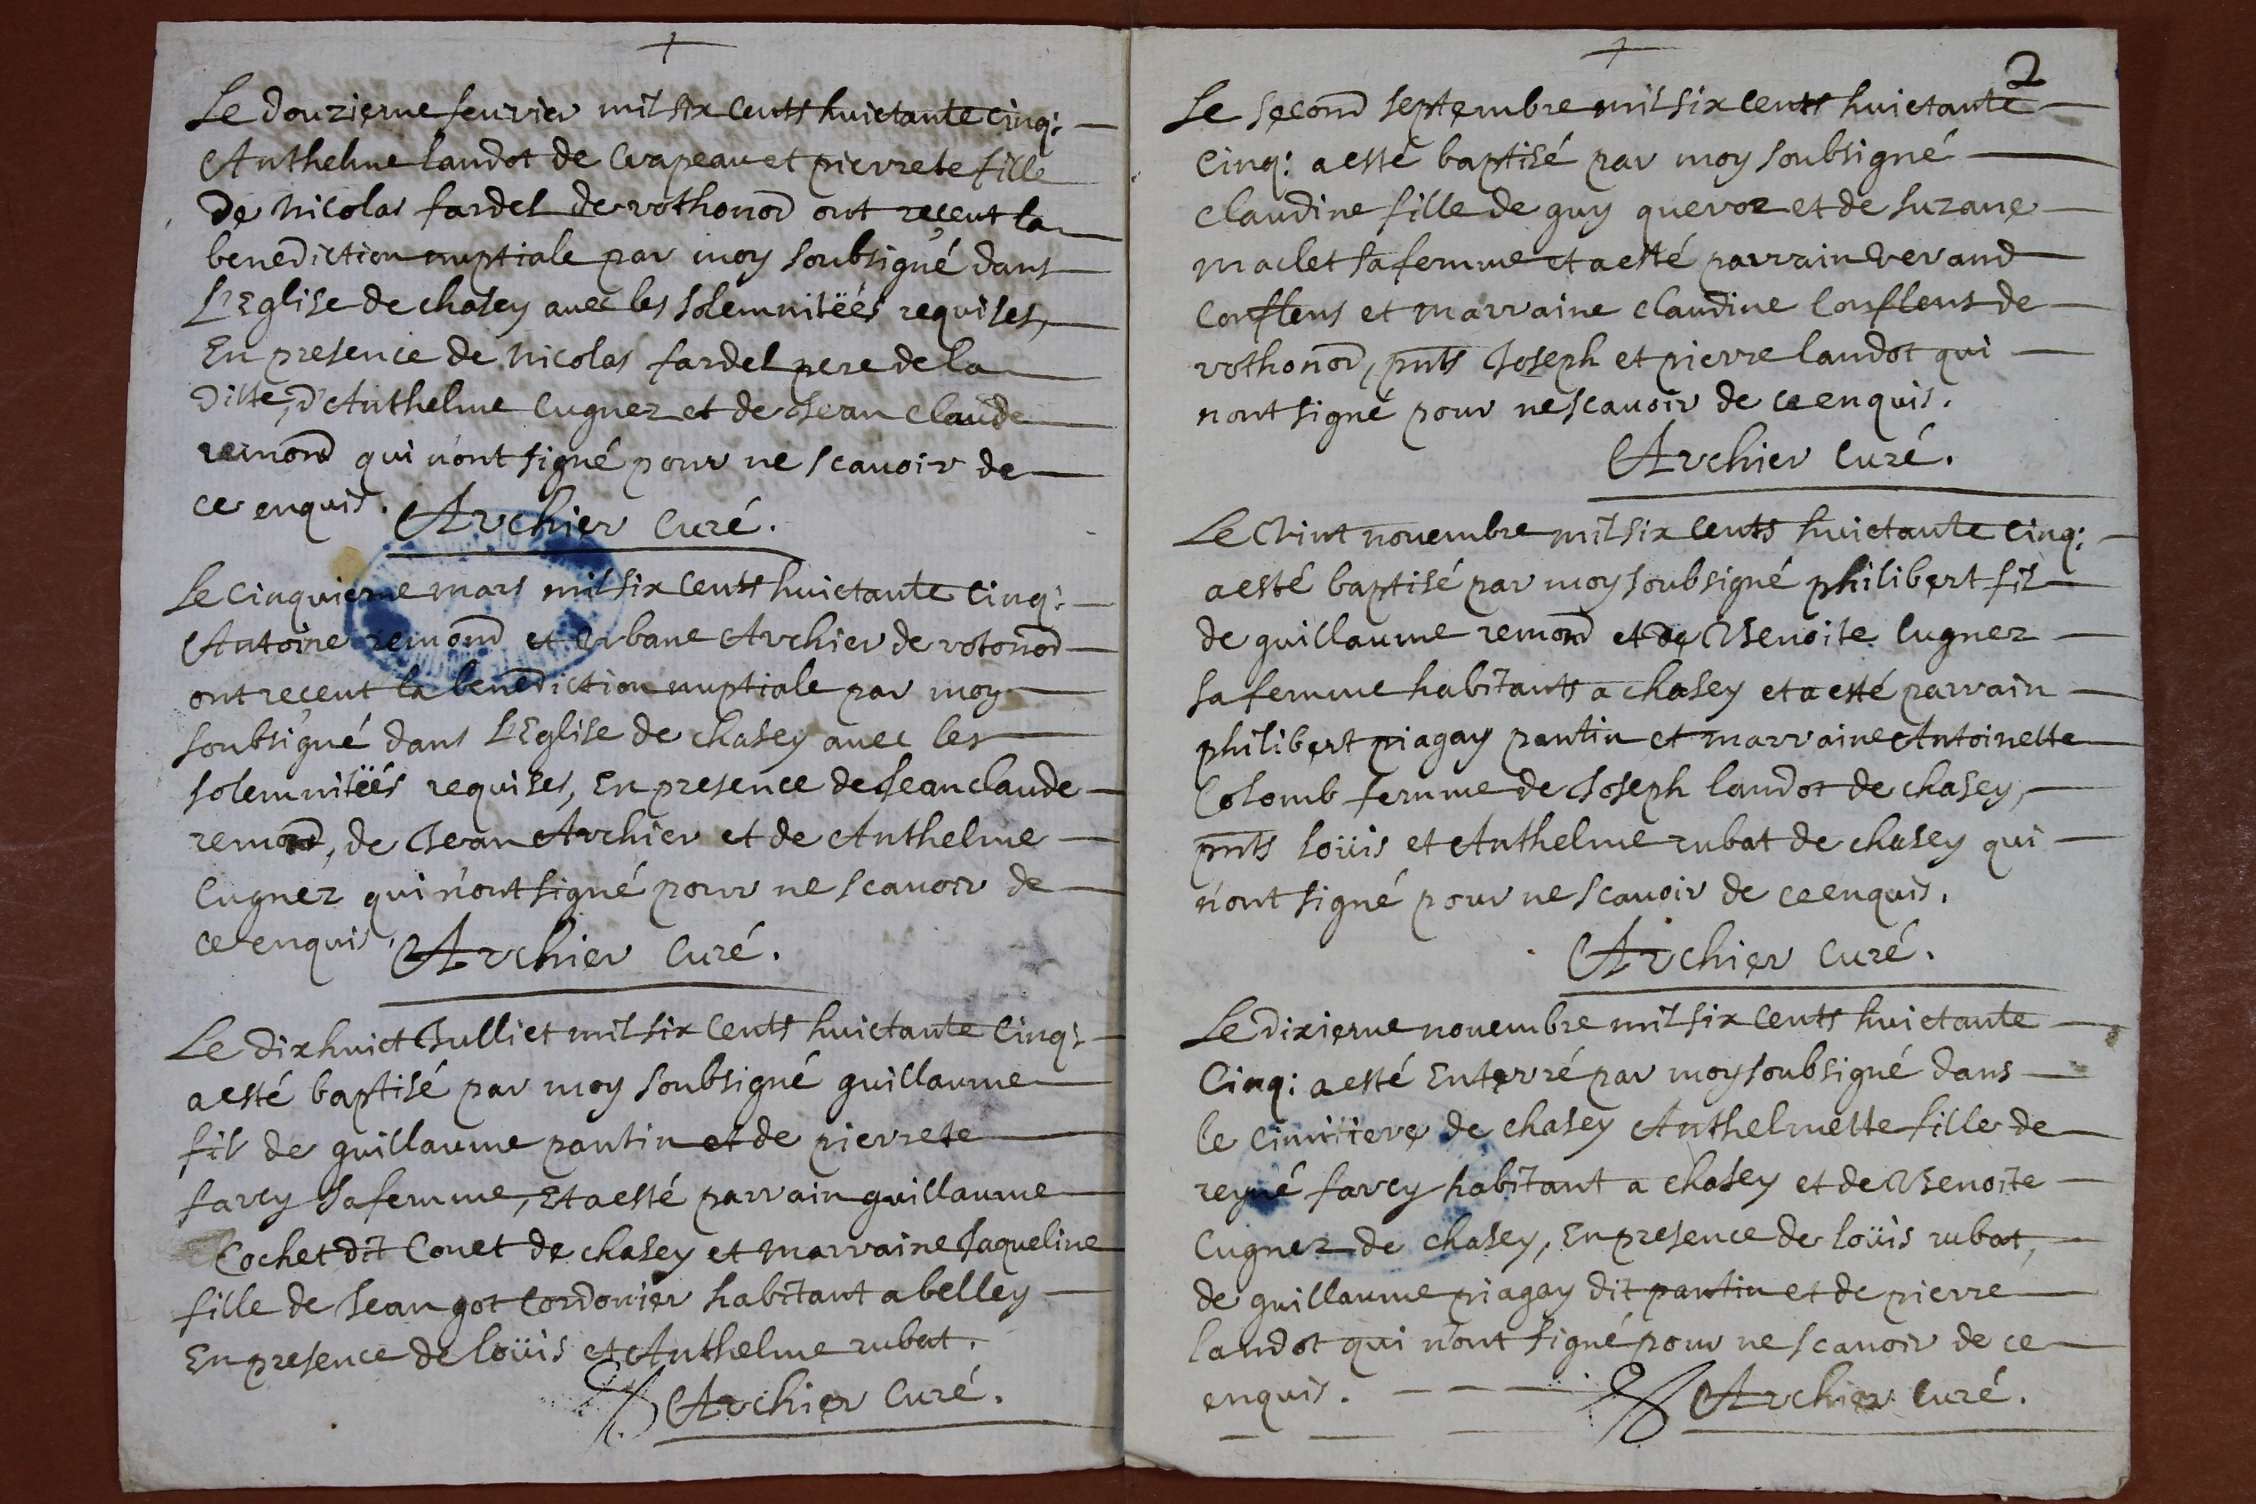 Le douzieme feuvrier mil six cents huictante cinq:
Anthelme landot de Crapeau et pierrete fille
de Nicolas fardel de rothonod ont reçeut la
benediction nuptiale par moy soubsigné dans
L'Eglise de chasey auec les solemnitëés requises,
En presence de Nicolas fardel pere de la
ditte, d'Anthelme Cugnez et de Jean Claude
remond qui n'ont signé pour ne scauoir de
ce enquis. Archier Curé.
Le Cinquieme mars mil six cents huictante cinq:
Antoine remond et Urbane Archier de rotonod
ont reçeut la benediction nuptiale par moy
soubsigné dans L'Eglise de chasey auec les
solemnitëés requises, En presence de Jean claude
remond, de Jean Archier et de Anthelme
Cugnez qui n'ont signé pour ne scauoir de
ce enquis. Archier Curé.
Le dixhuict Julliet mil six cents huictante cinq:
a esté baptisé par moy soubsigné guillaume
fil de guillaume pantin et de pierrete
farcy sa femme, Et a esté parrain guillaume
Cochet dit Couet de chasey et marraine Jaqueline
fille de Jean got Cordonier habitant a belley
En presence de loüis et Anthelme rubat.
Archier Curé.
2
Le second septembre mil six cents huictante
Cinq: a esté baptisé par moy soubsigné
claudine fille de guy quevoz et de suzane
maclet sa femme et a esté parrain Everand
Conflens et marraine claudine Conflens de
rothonod, pnts Joseph et pierre landot qui
nont signé pour ne scauoir de ce enquis.
Archier Curé.
Le Vint nouembre mil six cents huictante cinq:
a esté baptisé par moy soubsigné philibert fil
de guillaume remond et de Benoite Cugnez
sa femme habitants a chasey et a esté parrain
philibert piagay pantin et marraine Antoinette
Colomb femme de Joseph landot de chasey,
pnts loüis et Anthelme rubat de chasey qui
n'ont signé pour ne scauoir de ce enquis.
Archier Curé.
Le dixieme nouembre mil six cents huictante
Cinq: a esté Enterré par moy soubsigné dans
le cimitiere de chasey Anthelmette fille de
reyné farcy habitant a chasey et de Benoite
Cugnez de chasey, En presence de loüis rubat,
de guillaume piagay dit pantin et de pierre
landot qui n'ont signé pour ne scauoir de ce
enquis. Archier Curé.